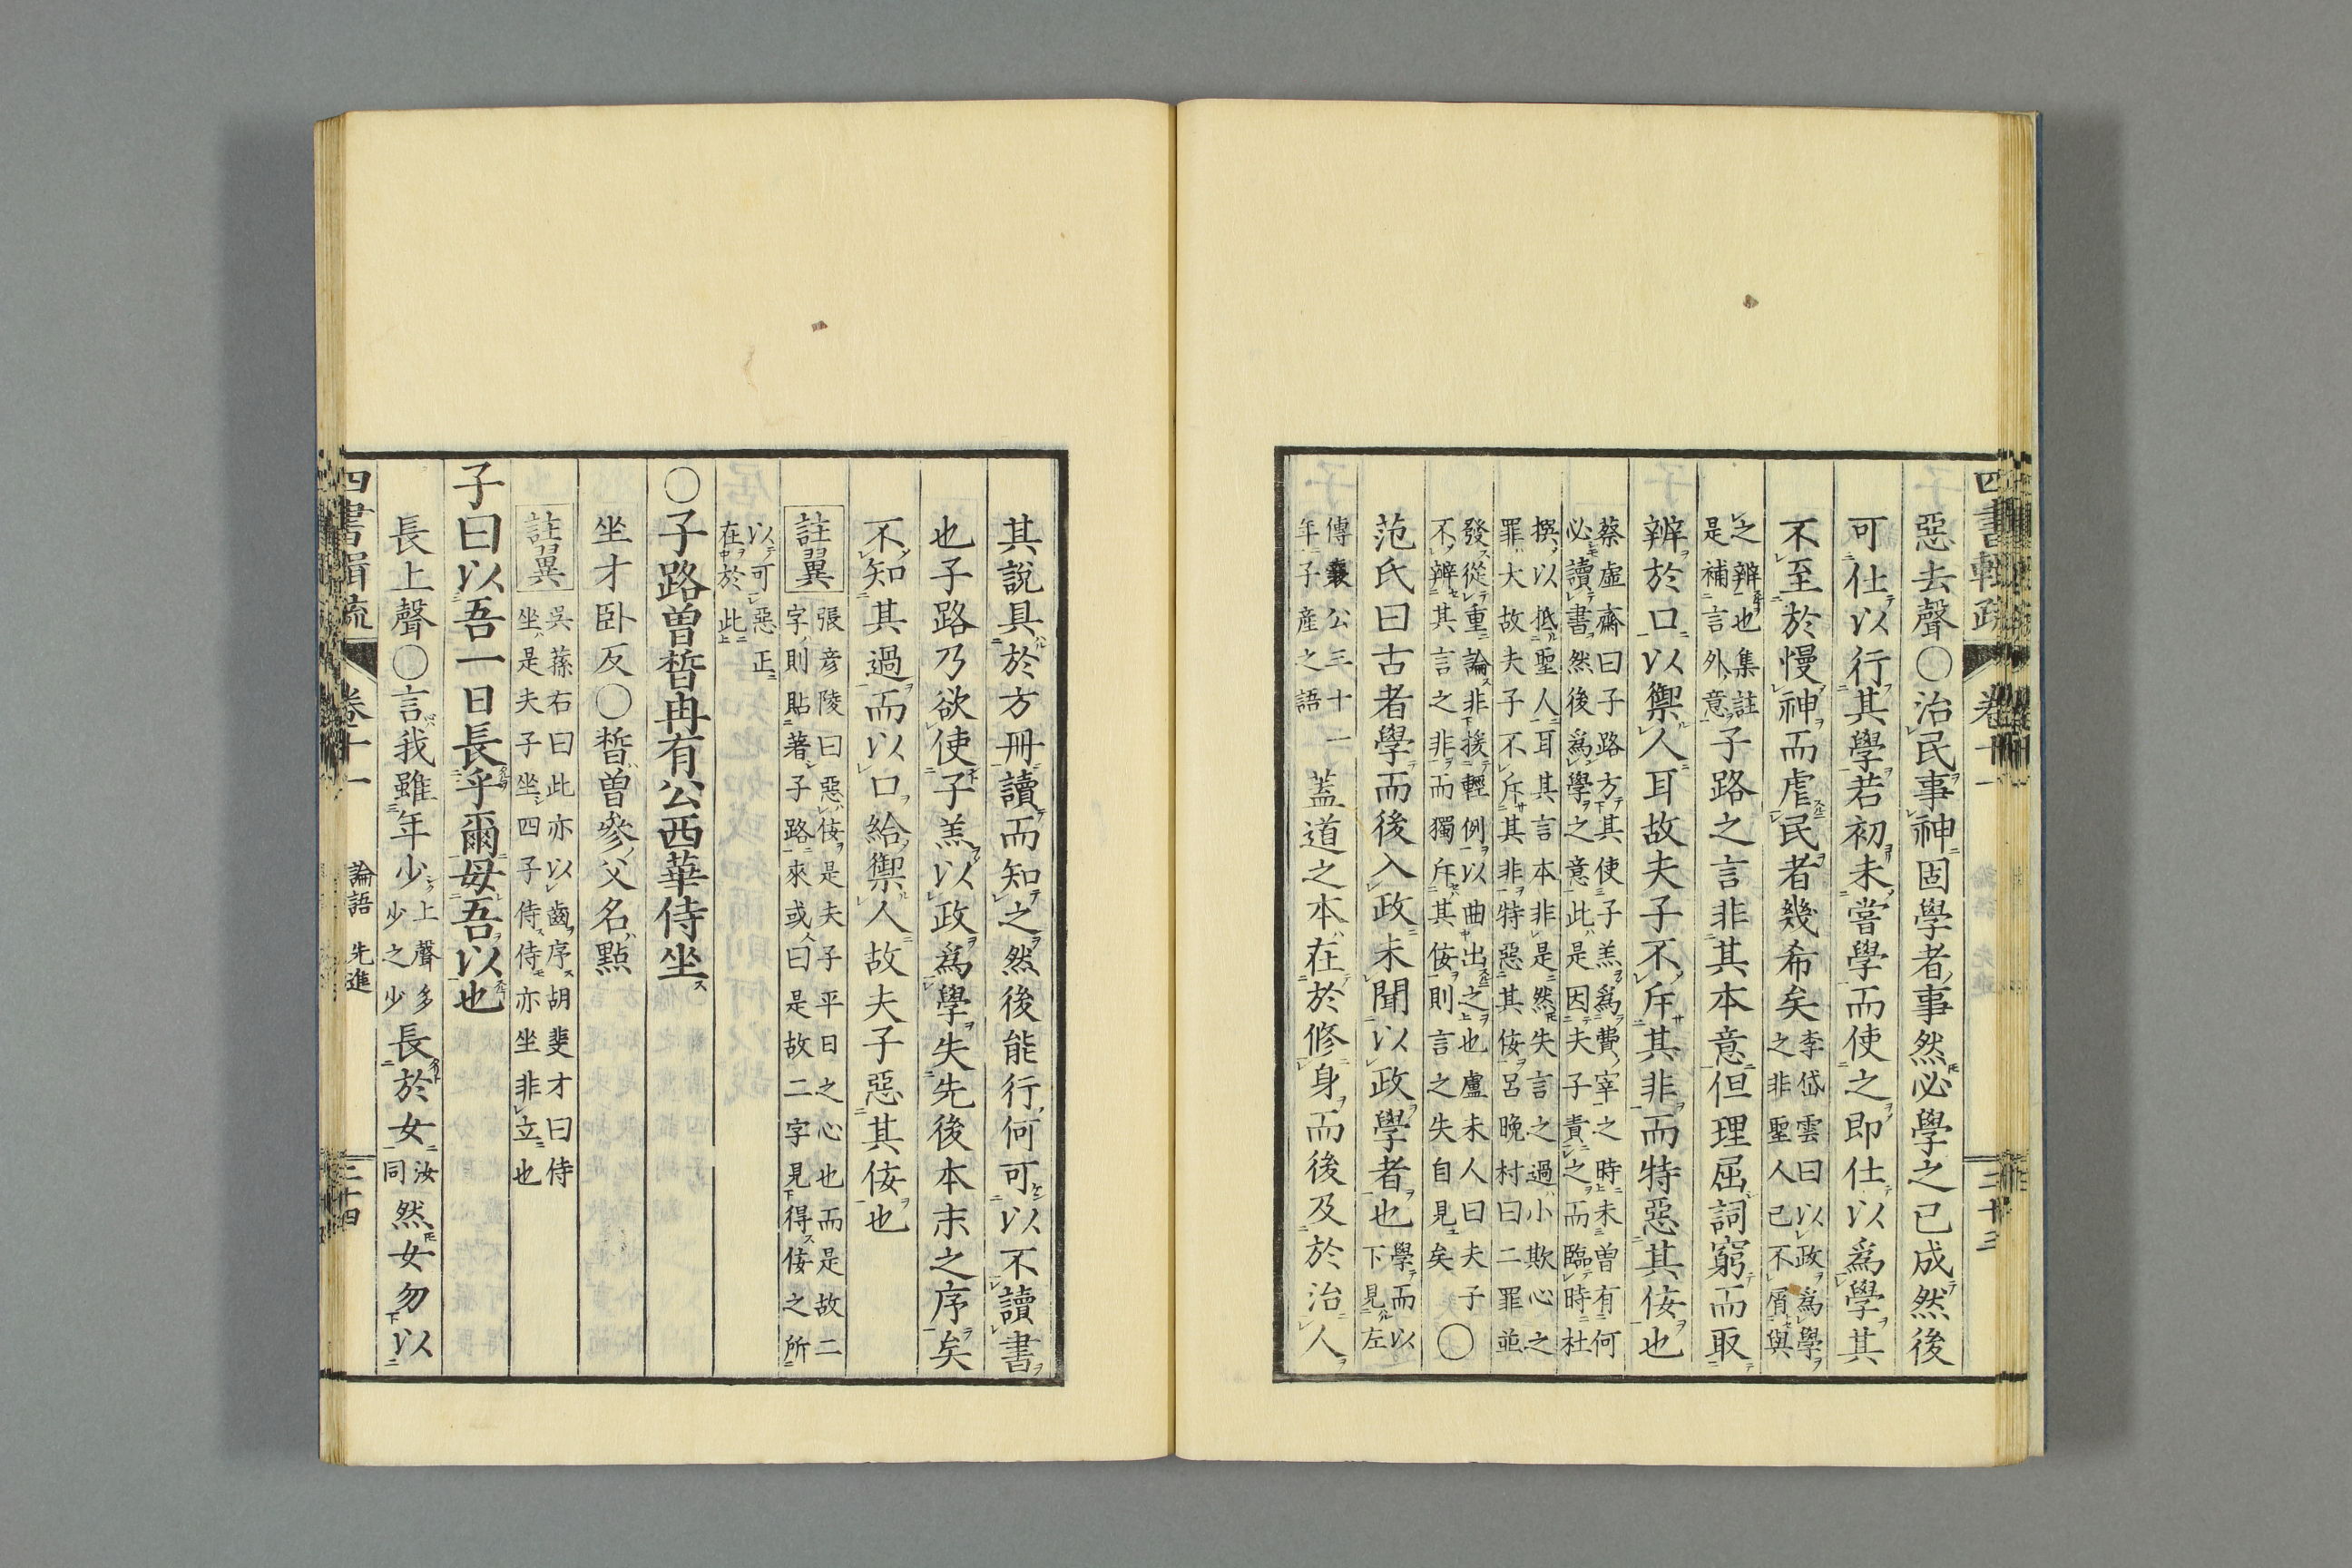 四書輯疏 卷十一 三十三
惡去聲○治民事神固學者事然必學之已成然後
可仕以行其學若初未嘗學而使之即仕以爲學其
不至於慢神而虐民者幾希矣李岱雲曰以政爲學
之非聖人已不屑與
之辨也集註
是補言外意子路之言非其本意但理屈詞窮而取
辨於口以禦人耳故夫子不斥其非而特惡其佞也
蔡虛齋曰子路方其使子羔爲費宰之時未曾有何
必讀書然後爲學之意此是因夫子責之而臨時杜
撰以抵聖人耳其言本非是然失言之過小欺心之
罪大故夫子不斥其非特惡其佞呂晚村曰二罪並
發從重論非援輕例以曲出之也盧未人曰夫子
不辨其言之非而獨斥其佞則言之失自見矣○
范氏曰古者學而後入政未聞以政學者也學而以
下見左
傳襄公三十一
年子產之語蓋道之本在於修身而後及於治人
其說具於方冊讀而知之然後能行何可以不讀書
也子路乃欲使子羔以政爲學失先後本末之序矣
不知其過而以口給禦人故夫子惡其佞也
註翼 張彦陵曰惡佞是夫子平日之心也而是故二
字則貼著子路來或曰是故二字見得佞之所
以可惡正
在於此
○子路曾皙冉有公西華侍坐
坐才卧反○皙曾參父名點
註翼 吳蓀右曰此亦以齒序胡斐才曰侍
坐是夫子坐四子侍侍亦坐非立也
子曰以吾一日長乎爾毋吾以也
長上聲○言我雖年少上聲多
少之少長於女汝
同然女勿以
四書輯疏 卷十一 論語 先進 三十四